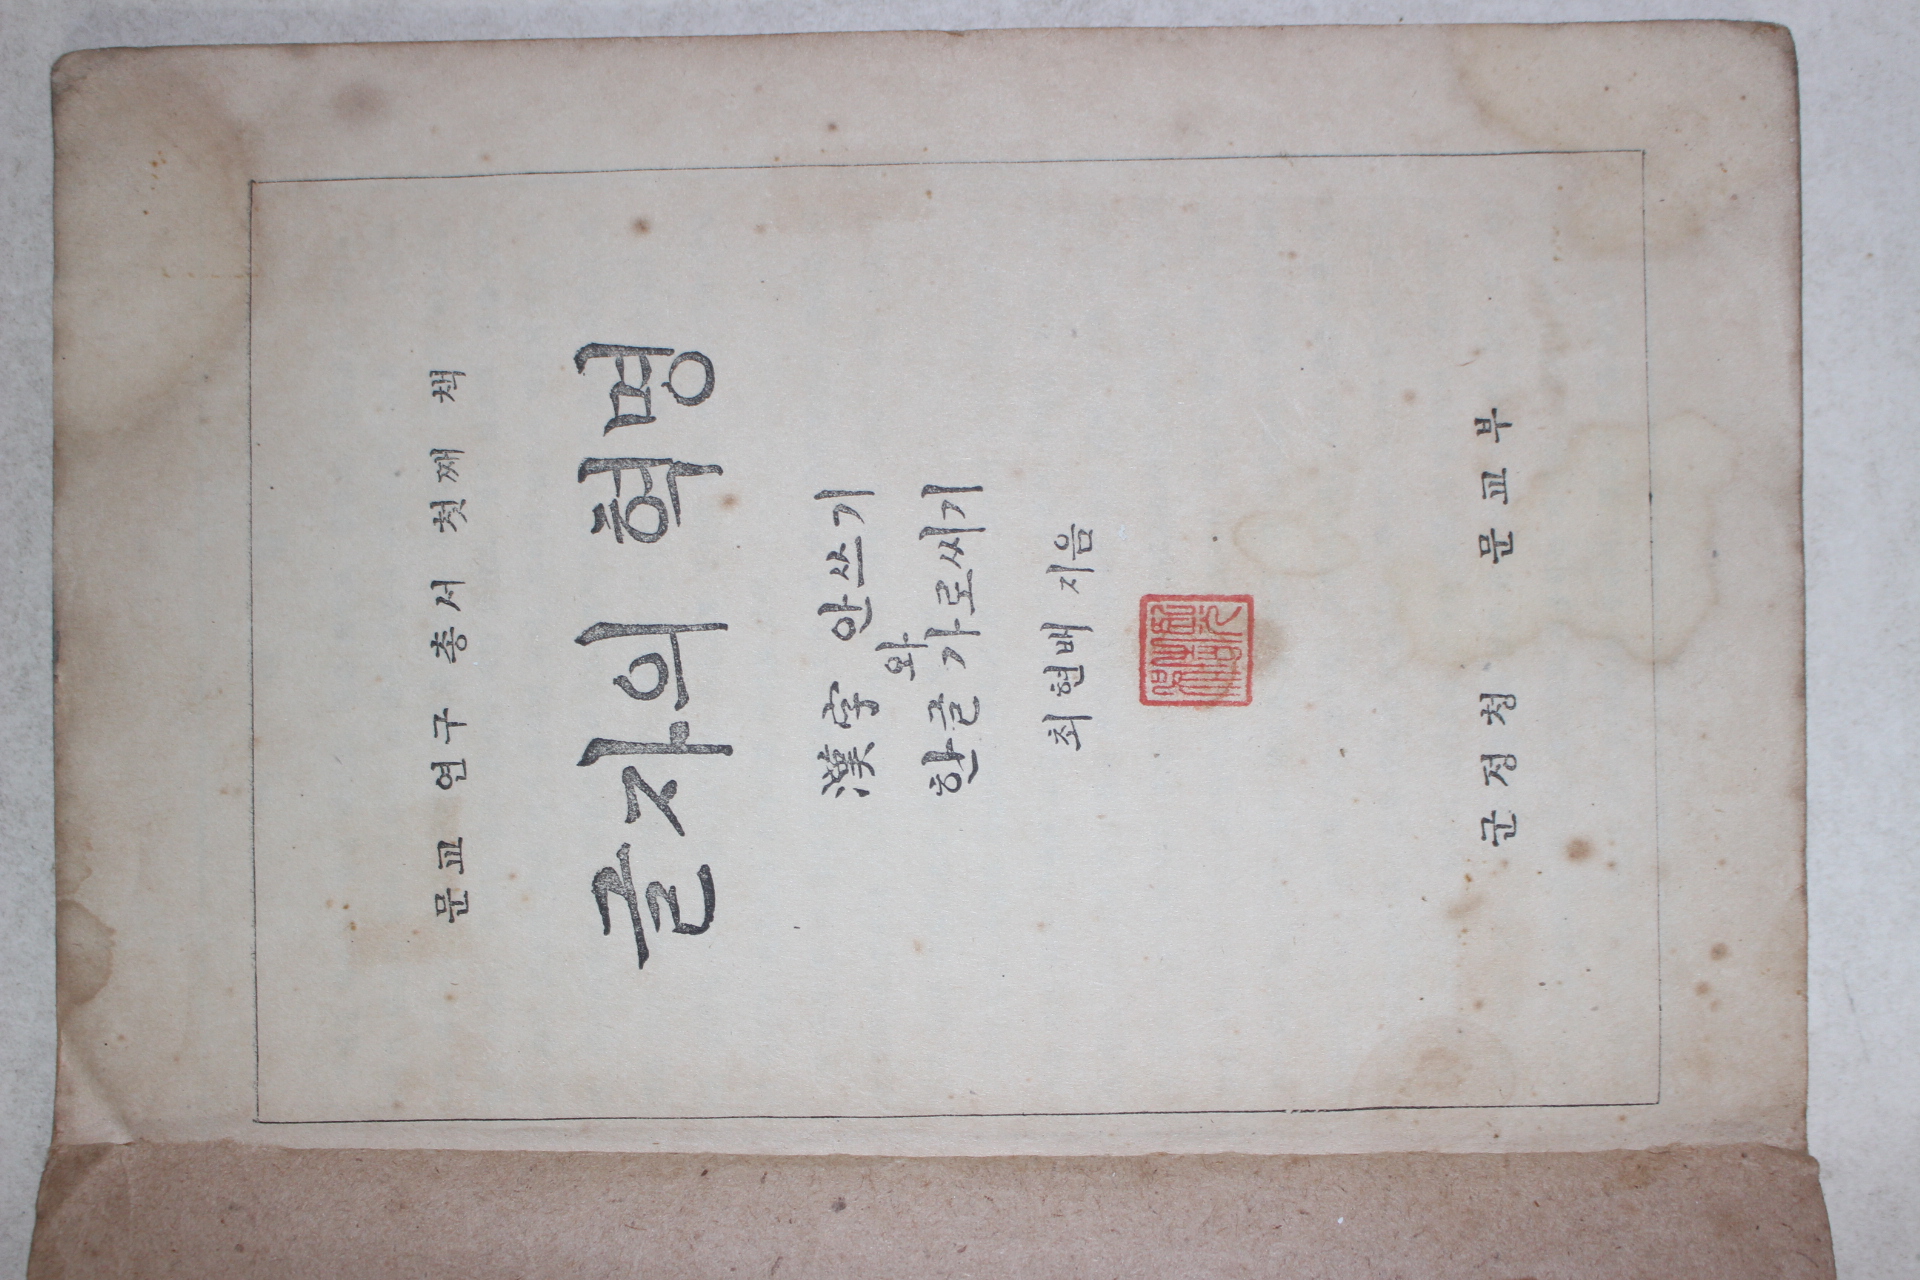 문교 연구 총서 첫째 책
글자의 혁명
漢字 안쓰기
와
한글 가로씨기
최현배 지음
군정청 문교부